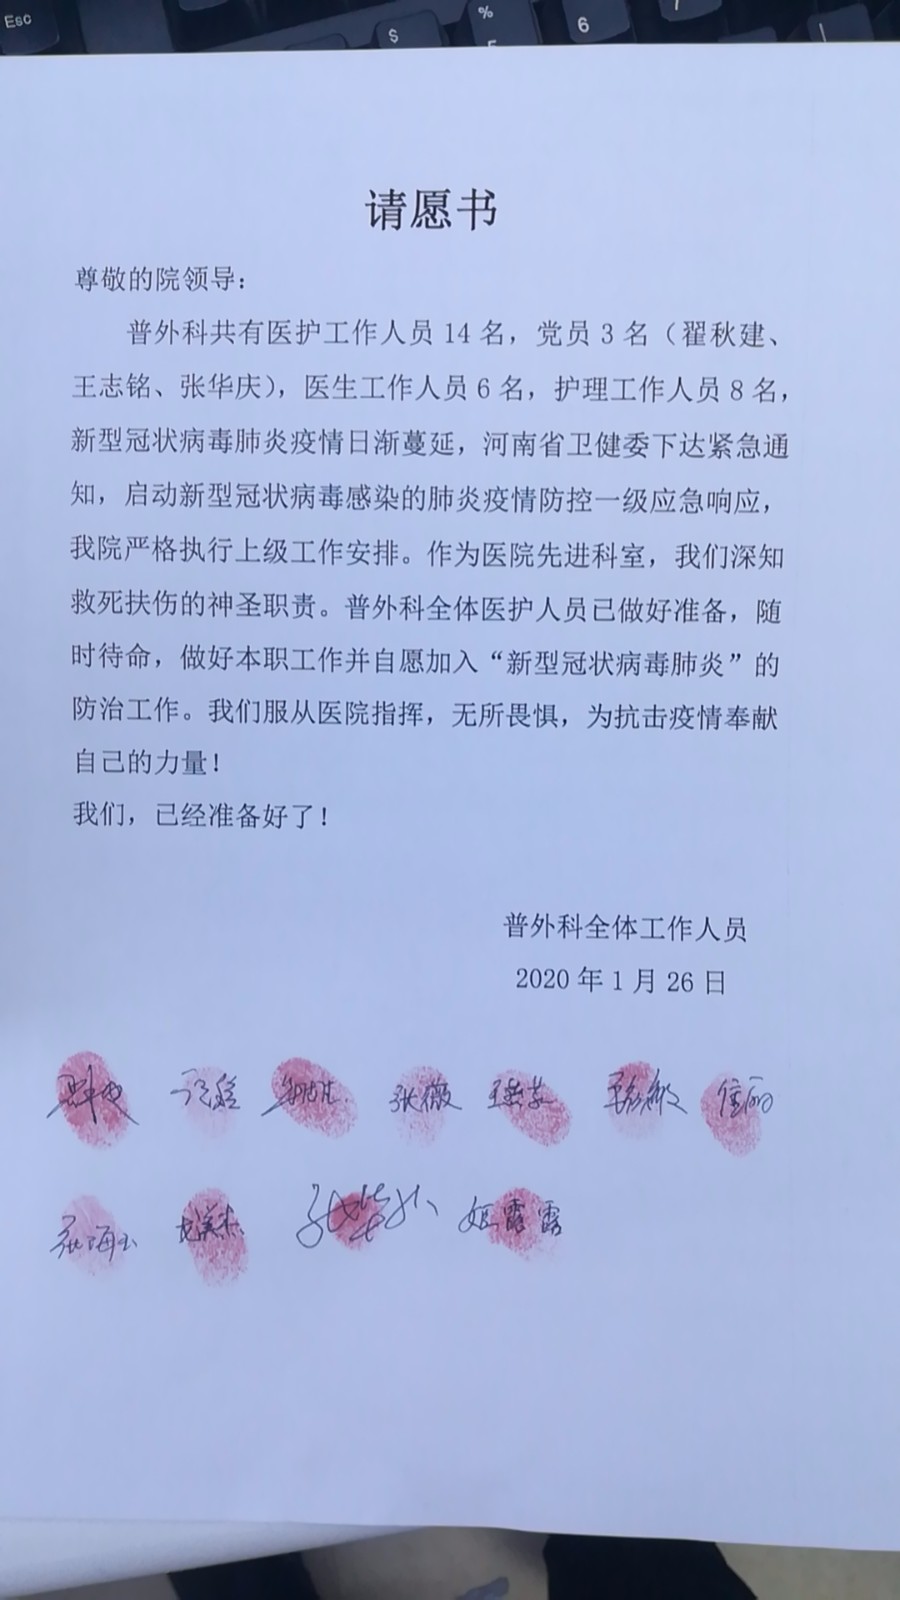 Esc
$
%
5
6
请愿书
尊敬的院领导：
普外科共有医护工作人员 14 名，党员 3 名（翟秋建、
王志铭、张华庆），医生工作人员 6 名，护理工作人员 8 名，
新型冠状病毒肺炎疫情日渐蔓延，河南省卫健委下达紧急通
知，启动新型冠状病毒感染的肺炎疫情防控一级应急响应，
我院严格执行上级工作安排。作为医院先进科室，我们深知
救死扶伤的神圣职责。普外科全体医护人员已做好准备，随
时待命，做好本职工作并自愿加入“新型冠状病毒肺炎”的
防治工作。我们服从医院指挥，无所畏惧，为抗击疫情奉献
自己的力量！
我们，已经准备好了！
普外科全体工作人员
2020 年 1 月 26 日
张薇
姬露露